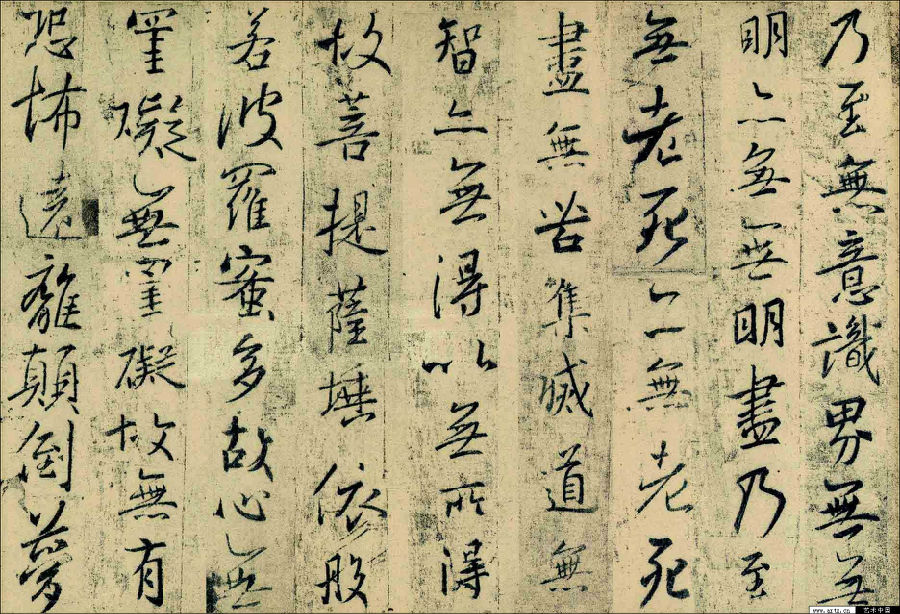 乃至無意識界無無
明亦無無明盡乃至
無老死亦無老死
盡無苦集滅道無
智亦無得以無所得
故菩提薩埵依般
若波羅蜜多故心無
罣礙無罣礙故無有
恐怖遠離顛倒夢
艺术中国